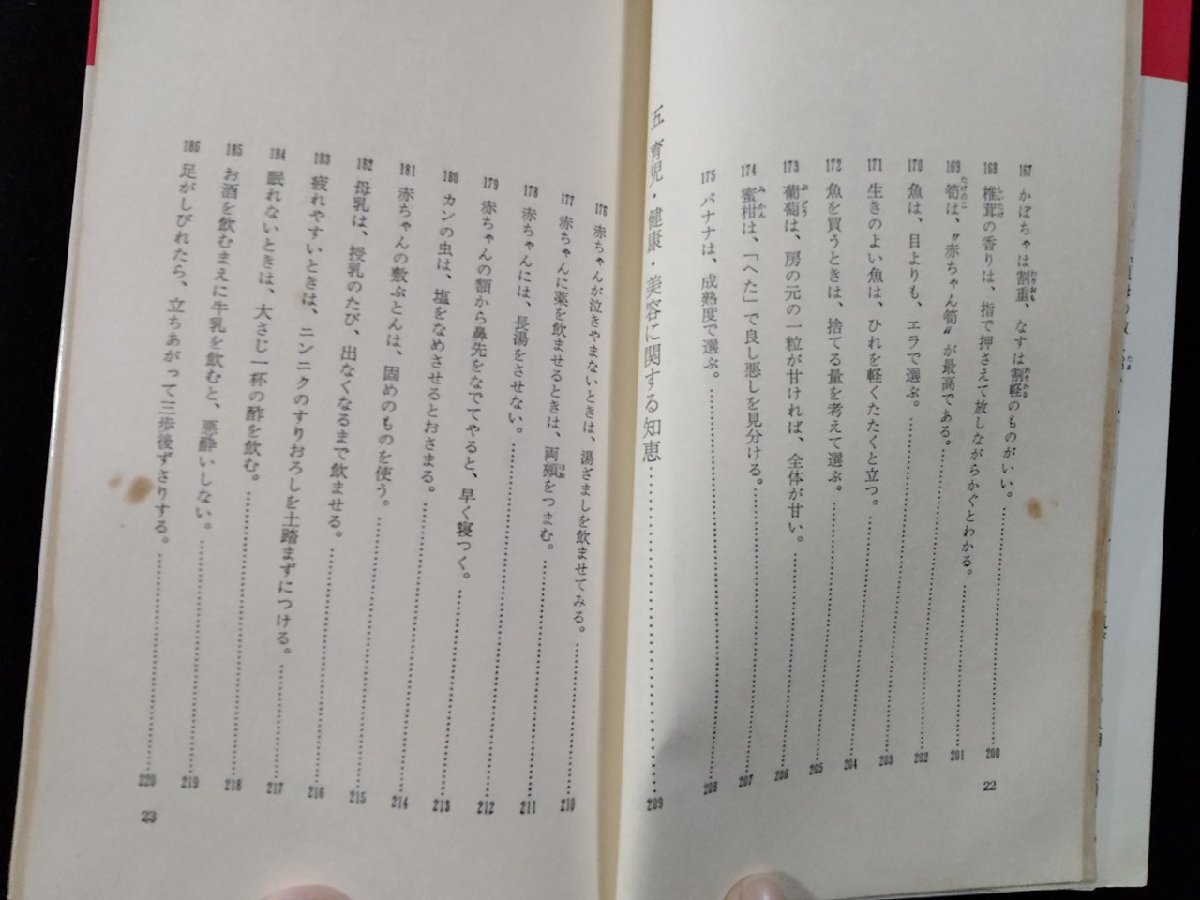 167 かぼちゃは割重、なすは割軽のものがいい。……200
わりおも わりかる
168 椎茸の香りは、指で押さえて放しながらかぐとわかる。……201
しいたけ
169 筍は、〝赤ちゃん筍〟が最高である。……202
たけのこ
170 魚は、目よりも、エラで選ぶ。……203
171 生きのよい魚は、ひれを軽くたたくと立つ。……204
172 魚を買うときは、捨てる量を考えて選ぶ。……205
173 葡萄は、房の元の一粒が甘ければ、全体が甘い。……206
ぶどう
174 蜜柑は、「へた」で良し悪しを見分ける。……207
みかん
175 バナナは、成熟度で選ぶ。……208
五 育児・健康・美容に関する知恵……209
22
176 赤ちゃんが泣きやまないときは、湯ざましを飲ませてみる。……210
177 赤ちゃんに薬を飲ませるときは、両頰をつまむ。……211
178 赤ちゃんには、長湯をさせない。……212
179 赤ちゃんの額から鼻先をなでてやると、早く寝つく。……213
180 カンの虫は、塩をなめさせるとおさまる。……214
181 赤ちゃんの敷ぶとんは、固めのものを使う。……215
182 母乳は、授乳のたび、出なくなるまで飲ませる。……216
183 疲れやすいときは、ニンニクのすりおろしを土踏まずにつける。……217
184 眠れないときは、大さじ一杯の酢を飲む。……218
185 お酒を飲むまえに牛乳を飲むと、悪酔いしない。……219
186 足がしびれたら、立ちあがって三歩後ずさりする。……220
23